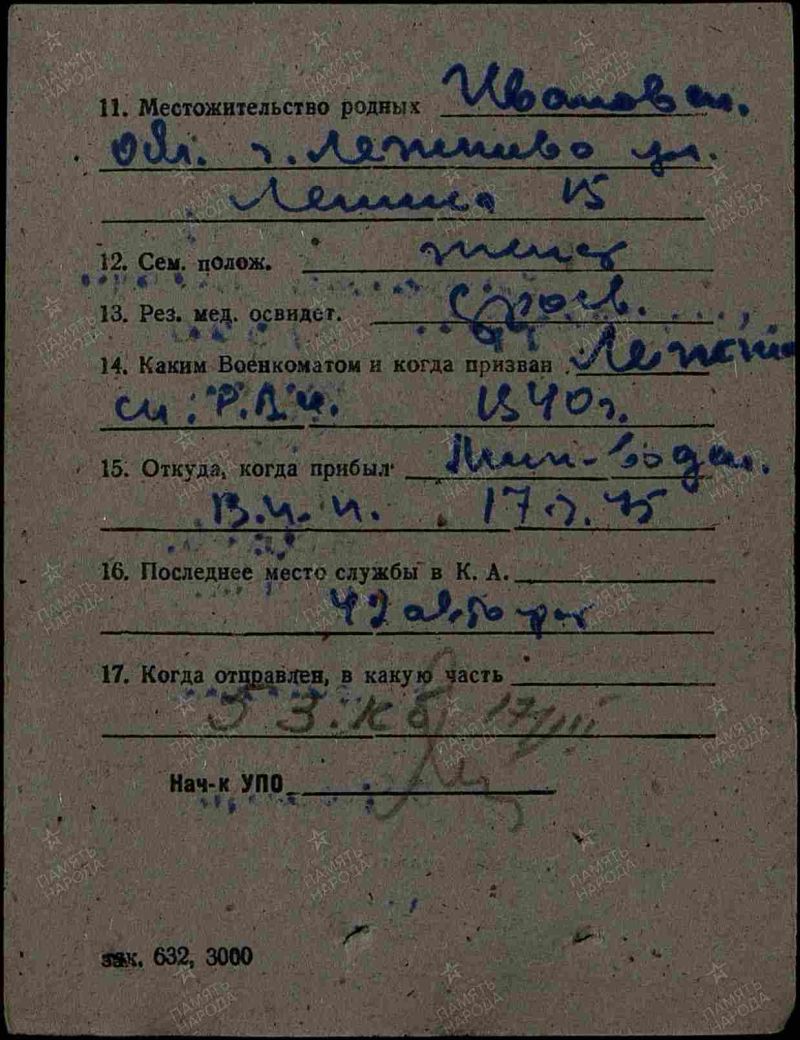 11. Местожительство родных Ивановск.
обл. г. Лежнево ул.
Ленина 15
12. Сем. полож. женат
13. Рез. мед. освидет.
14. Каким Военкоматом и когда призван Лежнев
ск. Р.В.К. 1940 г.
15. Откуда, когда прибыл Мин-водск.
В.П.П. 17.3.45
16. Последнее место службы в К. А.
42 автополк
17. Когда отправлен, в какую часть
17/III
Нач-к УПО
зак. 632, 3000
ПАМЯТЬ НАРОДА